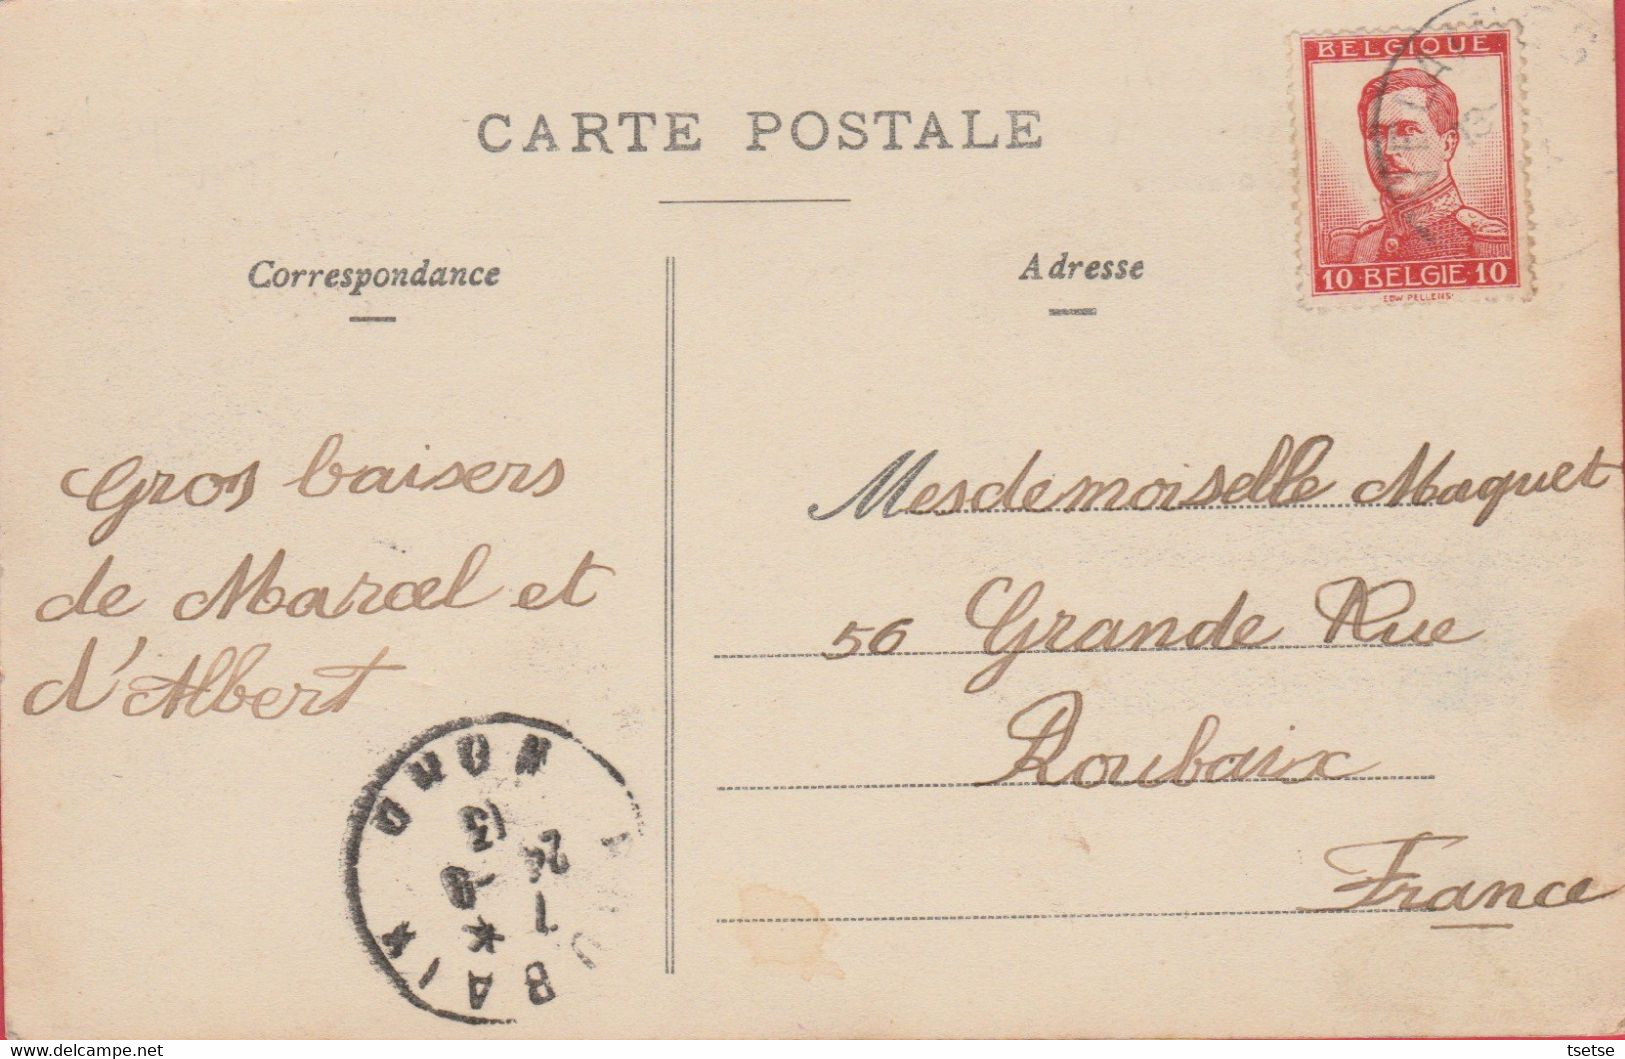 BELGIQUE
10 BELGIE 10
EDW PELLENS
CARTE POSTALE
Correspondance
Adresse
Gros baisers
de Marcel et
d'Albert
Mesdemoiselle Maquet
56 Grande Rue
Roubaix
France
ROUBAIX
NORD
delcampe.net
tsetse